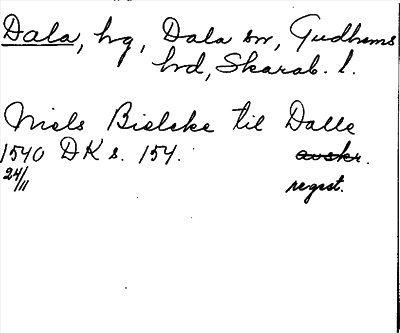 Dala, hg, Dala sn, Gudhems
hrd, Skarab. l.
Niels Bielcke til Dalle
1540 DK s. 154. avskr.
24/11 regest.